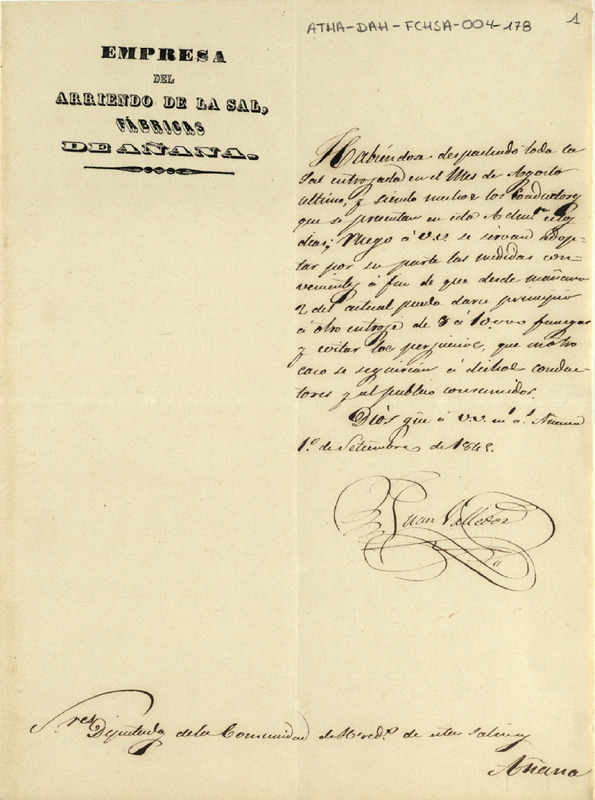 ATHA-DAH-FCHSA-004-178
1
EMPRESA
DEL
ARRIENDO DE LA SAL,
FÁBRICAS
DE AÑANA.
Habiéndose despachado toda la
sal entrojada en el Mes de Agosto
ultimo, y siendo muchos los conductores
que se presentan en esta Admon. estos
dias; Ruego á V.V. se sirvan adop-
tar por su parte las medidas con-
venientes á fin de que desde mañana
2 del actual pueda darse principio
á otro entroje de 8 á 10.000 fanegas
y evitar los perjuicios, que en otro
caso se seguirian á dichos conduc-
tores y al publico consumidor.
Dios gue á V.V. ms. as. Añana
1.º de Setiembre de 184
Juan Valledor
Sres. Diputados de la Comunidad de Hered.s de estas Salinas
Añana